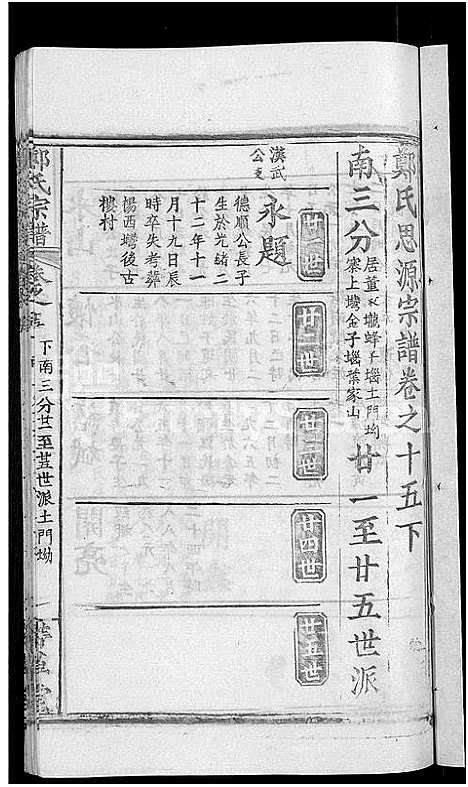 鄭氏思源宗譜卷之十五下
南三分
居董家壠蜂子堖土門坳
寨上塆金子堖葉家山
廿一至廿五世派
廿一世
廿二世
廿三世
廿四世
廿五世
漢武
公支
永題
德順公長子
生於光緒二
十二年十一
月十九日辰
時卒失考葬
楊西塆後古
樓村
鄭氏宗譜
卷之十五
下南三分廿一至廿五世派土門坳
一